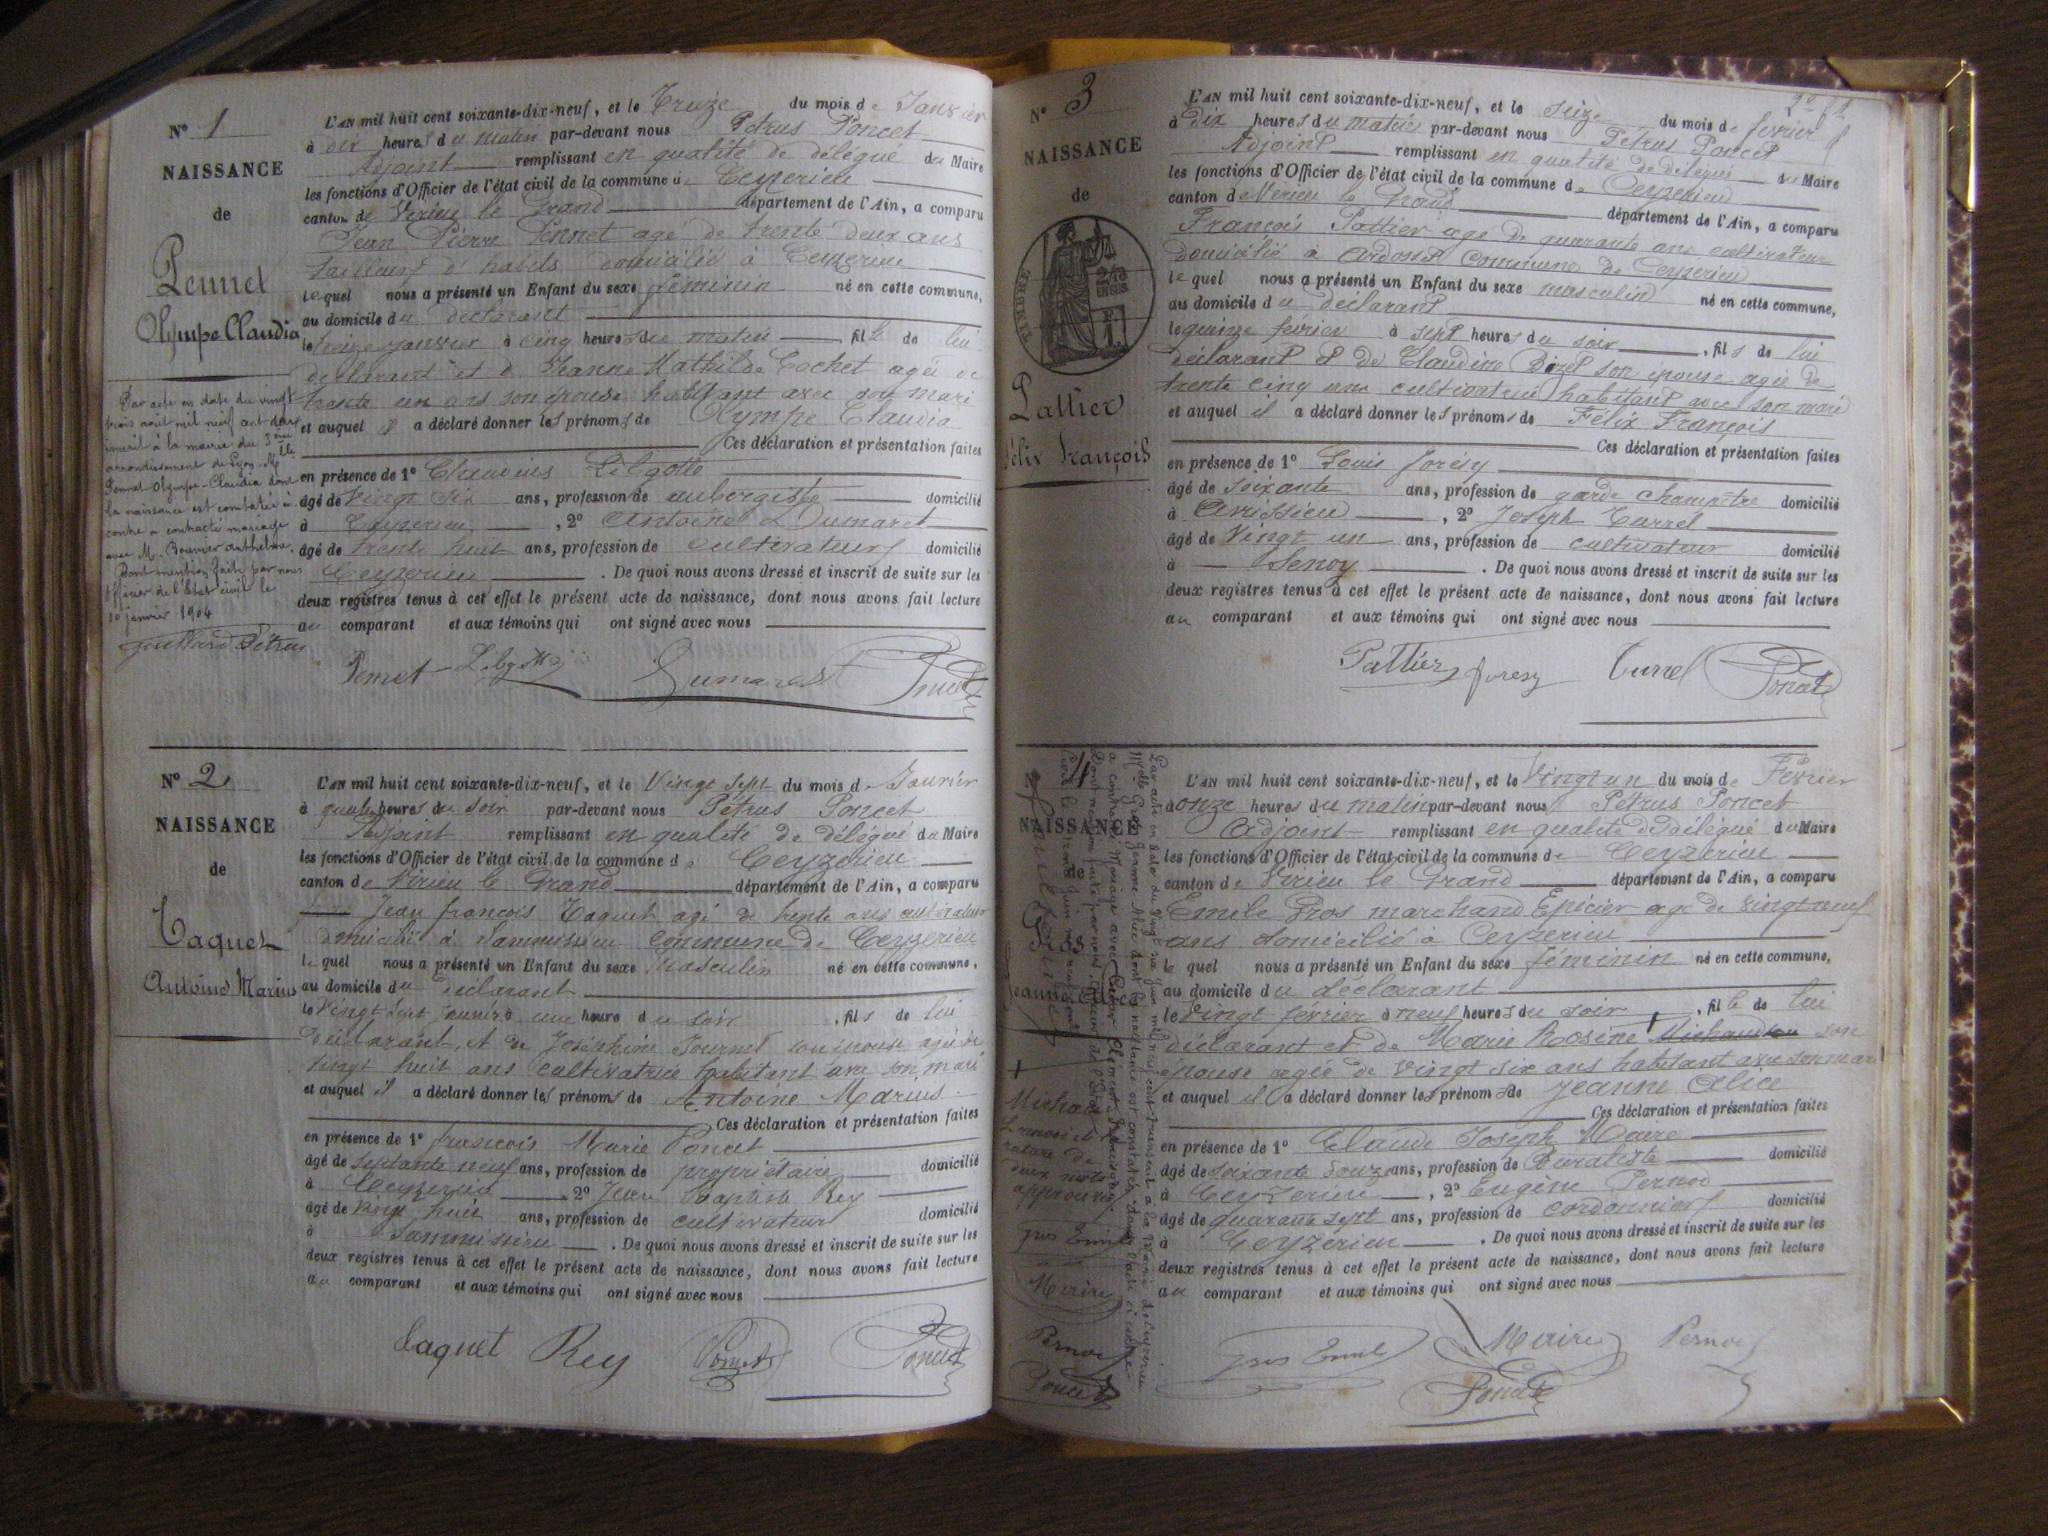 N° 1
NAISSANCE
de
Pennet
Olympe Claudia
Par acte en date du vingt
trois août mil neuf cent
inscrit à la mairie du 3ème
arrondissement de Lyon, Mlle
Pennet Olympe-Claudia dont
la naissance est constatée ci
contre a contracté mariage
avec M. Bouvier Anthelme.
Dont mention faite par nous
Officier de l'Etat civil le
10 janvier 1904
Petrus
L'AN mil huit cent soixante-dix-neuf, et le Treize du mois de Janvier
à dix heures du matin par-devant nous Pétrus Poncet
Adjoint remplissant en qualité de délégué du Maire
les fonctions d'Officier de l'état civil de la commune de Ceyzerieu
canton de Virieu le Grand département de l'Ain, a comparu
Jean Pierre Pennet agé de trente deux ans
tailleur d'habits domicilié à Ceyzerieu
lequel nous a présenté un Enfant du sexe féminin né en cette commune,
au domicile du déclarant
le treize janvier à cinq heures du matin, fille de lui
déclarant et de Jeanne Mathilde Cochet agée de
trente un ans son épouse habitant avec son mari
et auquel il a déclaré donner les prénoms de Olympe Claudia
Ces déclaration et présentation faites
en présence de 1° Claudius
âgé de vingt six ans, profession de aubergiste domicilié
à Ceyzerieu, 2° Antoine Dumarest
âgé de trente huit ans, profession de cultivateur domicilié
Ceyzerieu. De quoi nous avons dressé et inscrit de suite sur les
deux registres tenus à cet effet le présent acte de naissance, dont nous avons fait lecture
au comparant et aux témoins qui ont signé avec nous
Pennet Dumarest Poncet
N° 2
NAISSANCE
de
Taquet
Antoine Marius
L'AN mil huit cent soixante-dix-neuf, et le Vingt Sept du mois de Janvier
à quatre heures du soir par-devant nous Pétrus Poncet
Adjoint remplissant en qualité de délégué du Maire
les fonctions d'Officier de l'état civil de la commune de Ceyzerieu
canton de Virieu le Grand département de l'Ain, a comparu
Jean François Taquet agé de trente ans cultivateur
domicilié à commune de Ceyzerieu
lequel nous a présenté un Enfant du sexe masculin né en cette commune,
au domicile du déclarant
le Vingt Sept janvier à une heure du soir, fils de lui
déclarant, et de Joséphine Journet son épouse agée de
vingt huit ans cultivatrice habitant avec son mari
et auquel il a déclaré donner les prénoms de Antoine Marius
Ces déclaration et présentation faites
en présence de 1° François Marie Poncet
âgé de septante neuf ans, profession de propriétaire domicilié
à Ceyzerieu, 2° Jean Baptiste Rey
âgé de vingt huit ans, profession de cultivateur domicilié
à. De quoi nous avons dressé et inscrit de suite sur les
deux registres tenus à cet effet le présent acte de naissance, dont nous avons fait lecture
au comparant et aux témoins qui ont signé avec nous
Taquet Rey Poncet Poncet
N° 3
NAISSANCE
de
TIMBRE
Pattier
Félix François
L'AN mil huit cent soixante-dix-neuf, et le Seize du mois de février
à dix heures du matin par-devant nous Pétrus Poncet
Adjoint remplissant en qualité de délégué du Maire
les fonctions d'Officier de l'état civil de la commune de Ceyzerieu
canton de Virieu le Grand département de l'Ain, a comparu
François Pattier agé de quarante ans cultivateur
domicilié à Ardosset commune de Ceyzerieu
lequel nous a présenté un Enfant du sexe masculin né en cette commune,
au domicile du déclarant
le quinze février à sept heures du soir, fils de lui
déclarant et de Claudine son épouse agée de
trente cinq ans cultivatrice habitant avec son mari
et auquel il a déclaré donner les prénoms de Félix François
Ces déclaration et présentation faites
en présence de 1° Louis Forésy
âgé de soixante ans, profession de garde champêtre domicilié
à Avrissieu, 2° Joseph Currel
âgé de Vingt un ans, profession de cultivateur domicilié
à Senoy. De quoi nous avons dressé et inscrit de suite sur les
deux registres tenus à cet effet le présent acte de naissance, dont nous avons fait lecture
au comparant et aux témoins qui ont signé avec nous
Pattier Foresy Currel Poncet
N° 4
NAISSANCE
de
Gros
Jeanne Alice
deux mots
approuvés
Gros Emile
Maire
Pernod
Poncet
L'AN mil huit cent soixante-dix-neuf, et le Vingt un du mois de Février
à onze heures du matin par-devant nous Pétrus Poncet
Adjoint remplissant en qualité de délégué du Maire
les fonctions d'Officier de l'état civil de la commune de Ceyzerieu
canton de Virieu le Grand département de l'Ain, a comparu
Emile Gros marchand Epicier agé de vingt neuf
ans domicilié à Ceyzerieu
lequel nous a présenté un Enfant du sexe féminin né en cette commune,
au domicile du déclarant
le Vingt février à neuf heures du soir, fille de lui
déclarant et de Marie Rosine son
épouse agée de vingt six ans habitant avec son mari
et auquel il a déclaré donner les prénoms de Jeanne Alice
Ces déclaration et présentation faites
en présence de 1° Claude Joseph Maire
âgé de soixante douze ans, profession de Buraliste domicilié
à Ceyzerieu, 2° Eugène Pernod
âgé de quarante sept ans, profession de cordonnier domicilié
à Ceyzerieu. De quoi nous avons dressé et inscrit de suite sur les
deux registres tenus à cet effet le présent acte de naissance, dont nous avons fait lecture
au comparant et aux témoins qui ont signé avec nous
Gros Emile Maire Pernod
Poncet